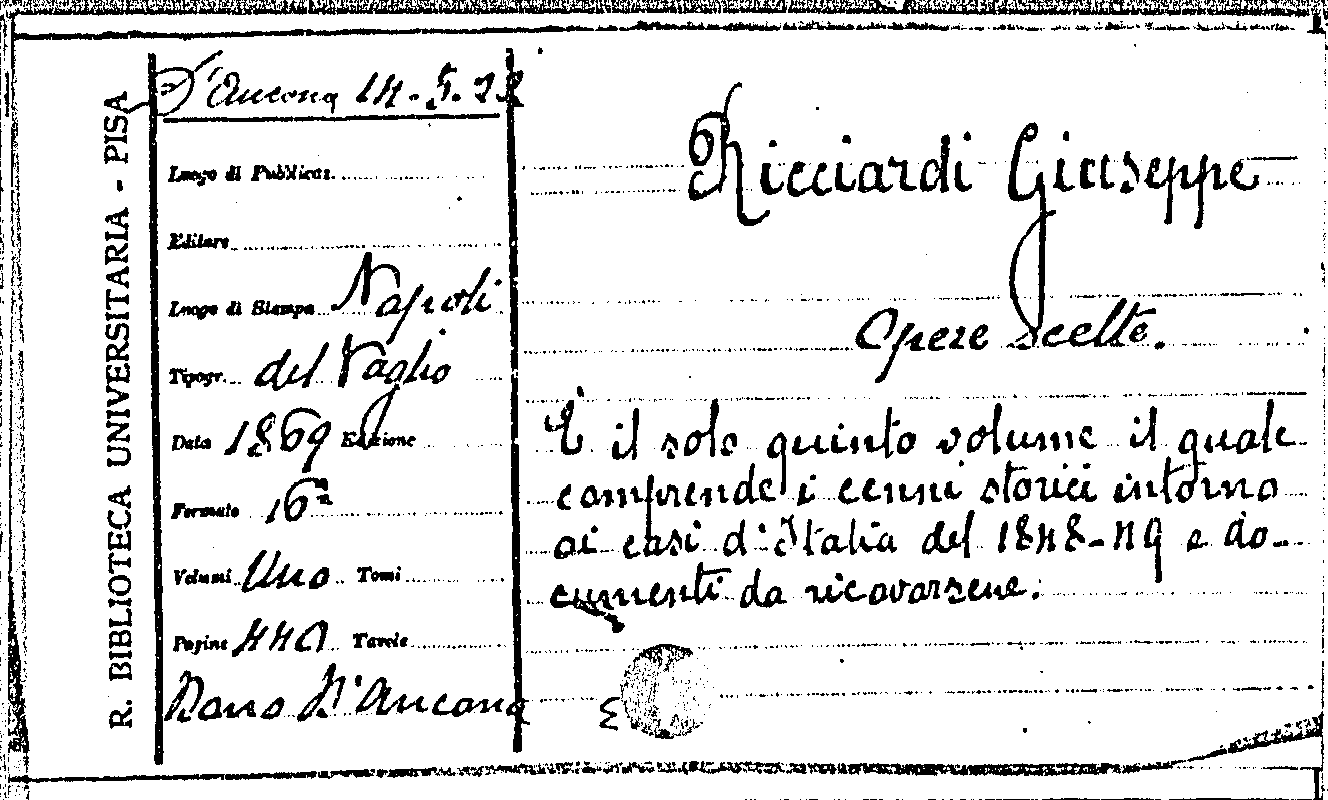 R. BIBLIOTECA UNIVERSITARIA - PISA
D'Ancona 14.5.
Luogo di Pubblicaz.
Editore
Luogo di Stampa Napoli
Tipogr. del Vaglio
Data 1869 Edizione
Formato 16º
Volumi Uno Tomi
Pagine 440 Tavole
Dono D'Ancona
Ricciardi Giuseppe
Opere scelte.
È il solo quinto volume il quale
comprende i cenni storici intorno
ai casi d'Italia del 1848-49 e do-
cumenti da ricavarsene.